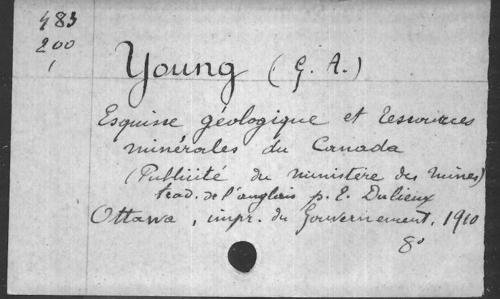 483
200
1
Young (G. A.)
Esquisse géologique et ressources
minérales du Canada
(Publicité du ministère des mines)
trad. de l'anglais p. E. Dulieux
Ottawa, impr. du Gouvernement, 1910
8°